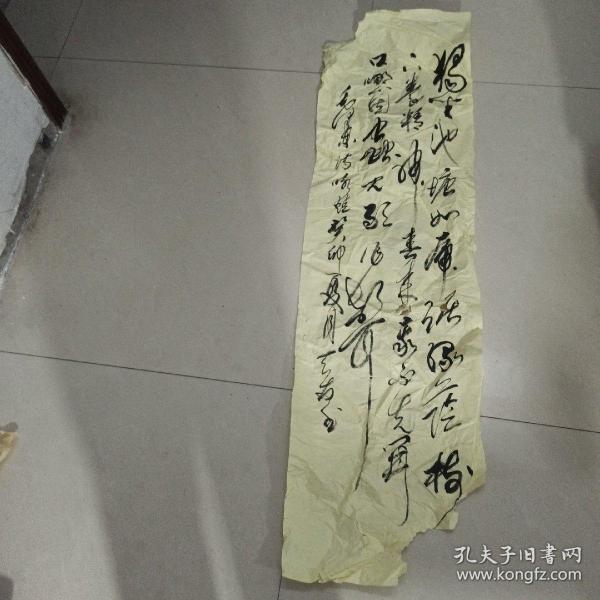 独坐池塘如虎踞绿荫树
下养精神春来我不先开
口哪个虫儿敢作声
毛泽东诗咏蛙癸卯夏月
孔夫子旧书网
www.kongfz.com